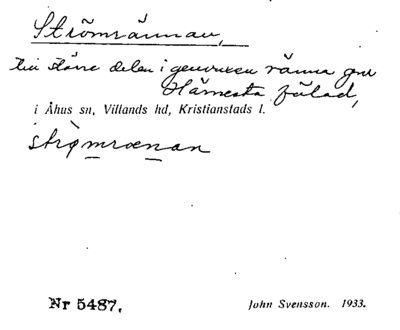 Strömrännan,
till större delen i genomren ränna gm
Härnesta fälad,
i Åhus sn, Villands hd, Kristianstads l.
strømrænan
Nr 5487.
John Svensson. 1933.